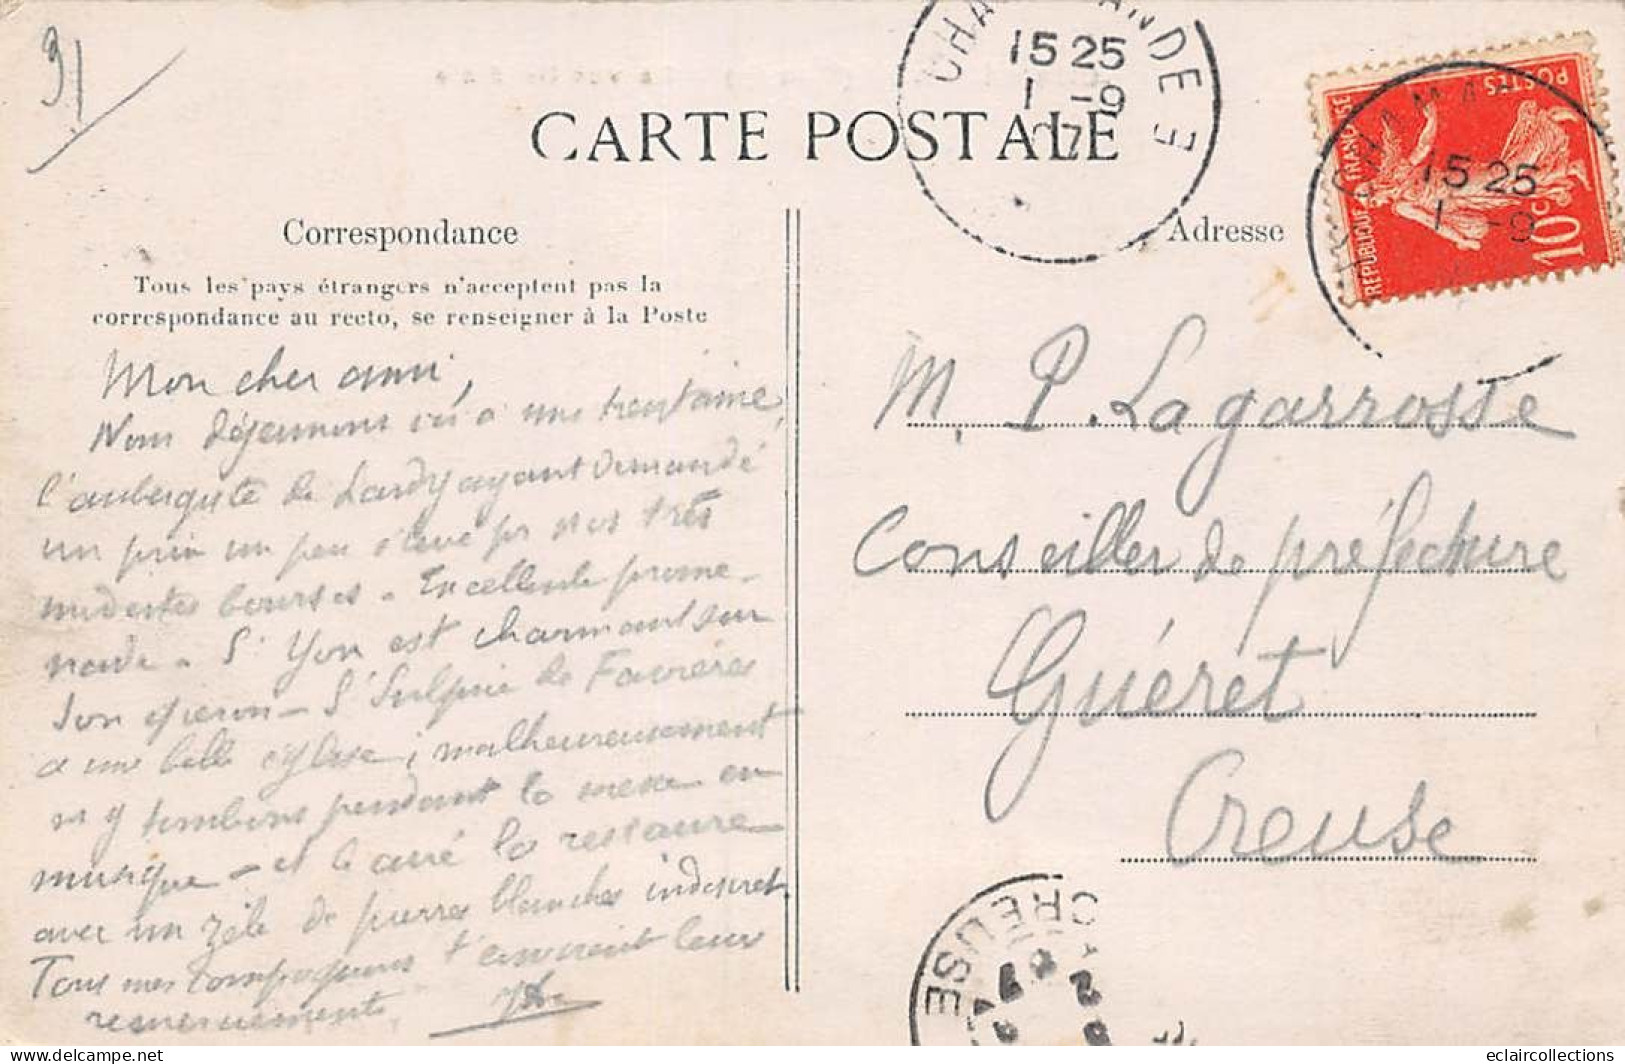 31
CARTE POSTALE
15 25
1 -9
07
15 25
1 -9
REPUBLIQUE FRANÇAISE
POSTES
10c
Correspondance
Tous les pays étrangers n'acceptent pas la
correspondance au recto, se renseigner à la Poste
Mon cher ami,
Nous déjeunons ici à une trentaine,
l'aubergiste de Lardy ayant demandé
un prix un peu élevé pr nos très
modestes bourses. Excellente prome-
nade. St Yon est charmant sur
son – St Sulpice de Favières
a une belle église, malheureusement
ns y tombons pendant la messe en
musique – et le curé la restaure
avec un zèle de pierres blanches indiscret
Tous mes compagnons t'envoient leurs
remerciements
Adresse
M. P. Lagarrosse
Conseiller de préfecture
Guéret
Creuse
CREUSE
eclaircollections
© delcampe.net